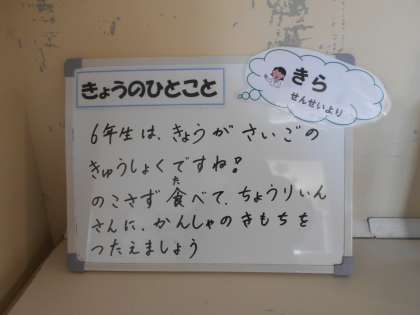 きょうのひとこと
きら
せんせいより
6年生は、きょうがさいごの
きゅうしょくですね!
のこさず食べて、ちょうりいん
た
さんに、かんしゃのきもちを
つたえましょう